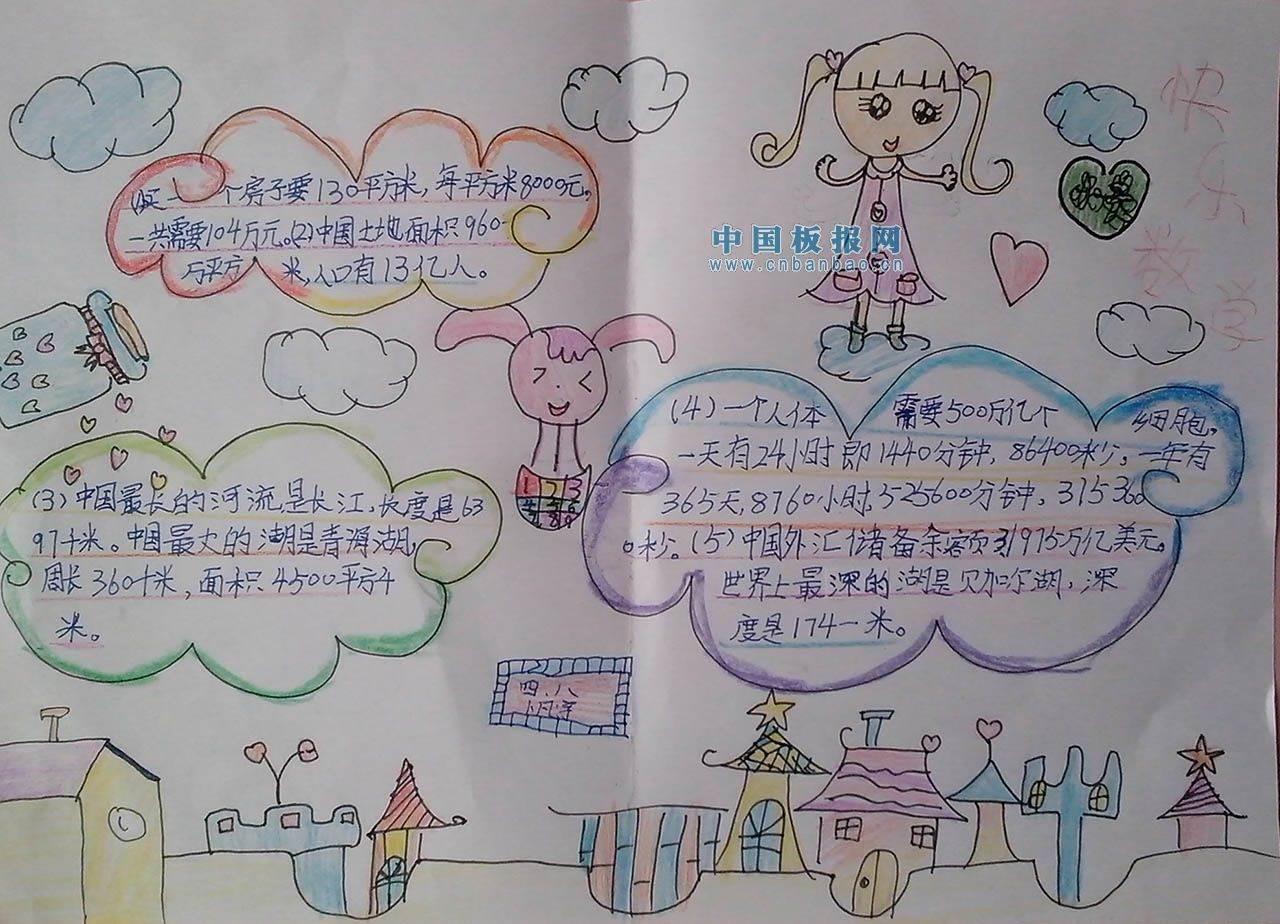 快
乐
数
学
一个房子要130平方米，每平方米8000元。
一共需要104万元。(2)中国土地面积960
万平方 米，人口有13亿人。
中国板报网
www.cnbanbao.cn
(3)中国最长的河流是长江，长度是63
97千米。中国最大的湖是青海湖，
周长360千米，面积4500平方千
米。
1 2 3
4 5 6
7 8 9
(4)一个人体 需要500万亿个 细胞。
一天有24小时即1440分钟，86400秒。一年有
365天，8760小时，525600分钟，315360
0秒。(5)中国外汇储备余额31975万亿美元。
世界上最深的湖是贝加尔湖，深
度是1741米。
四、八